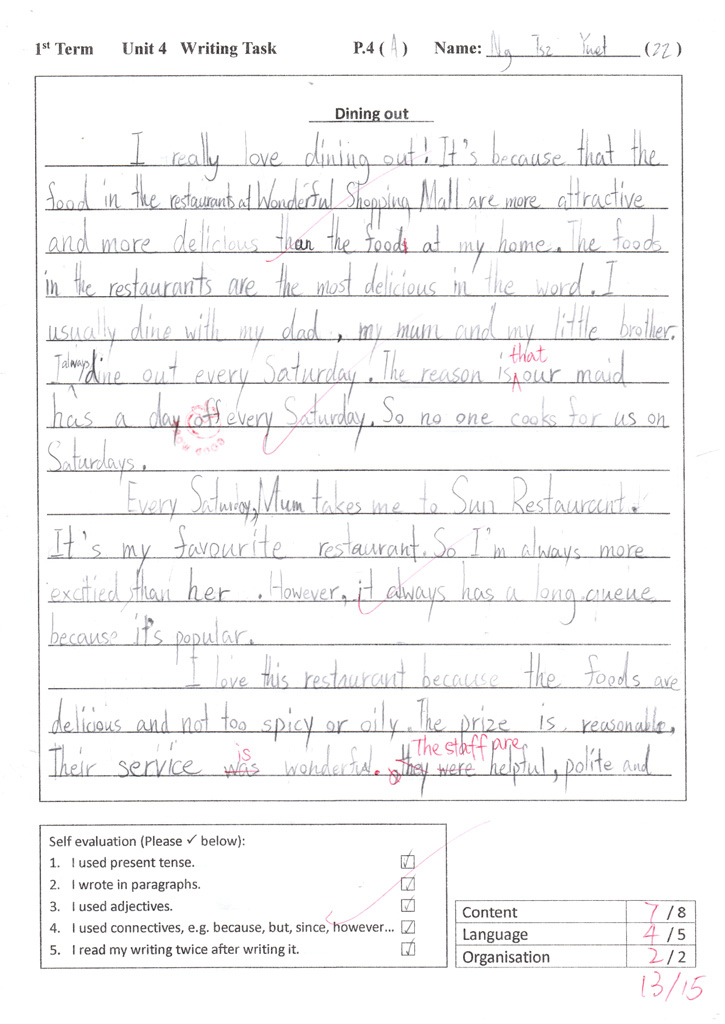 1st Term Unit 4 Writing Task P.4 ( A ) Name: Ng Tsz Yuet (22)
Dining out
I really love dining out! It's because that the
food in the restaurants at Wonderful Shopping Mall are more attractive
and more delicious than the foods at my home. The foods
in the restaurants are the most delicious in the word. I
usually dine with my dad, my mum and my little brother.
that
I always dine out every Saturday. The reason is our maid
has a day off every Saturday. So no one cooks for us on
Saturdays.
Every Saturday, Mum takes me to Sun Restaurant.
It's my favourite restaurant. So I'm always more
excitied than her. However, it always has a long queue
because it's popular.
I love this restaurant because the foods are
delicious and not too spicy or oily. The prize is reasonable.
is The staff are
Their service was wonderful. they were helpful, polite and
Self evaluation (Please ✓ below):
1. I used present tense. ☑
2. I wrote in paragraphs. ☑
3. I used adjectives. ☑
4. I used connectives, e.g. because, but, since, however... ☑
5. I read my writing twice after writing it. ☑
Content 7 / 8
Language 4 / 5
Organisation 2 / 2
13/15